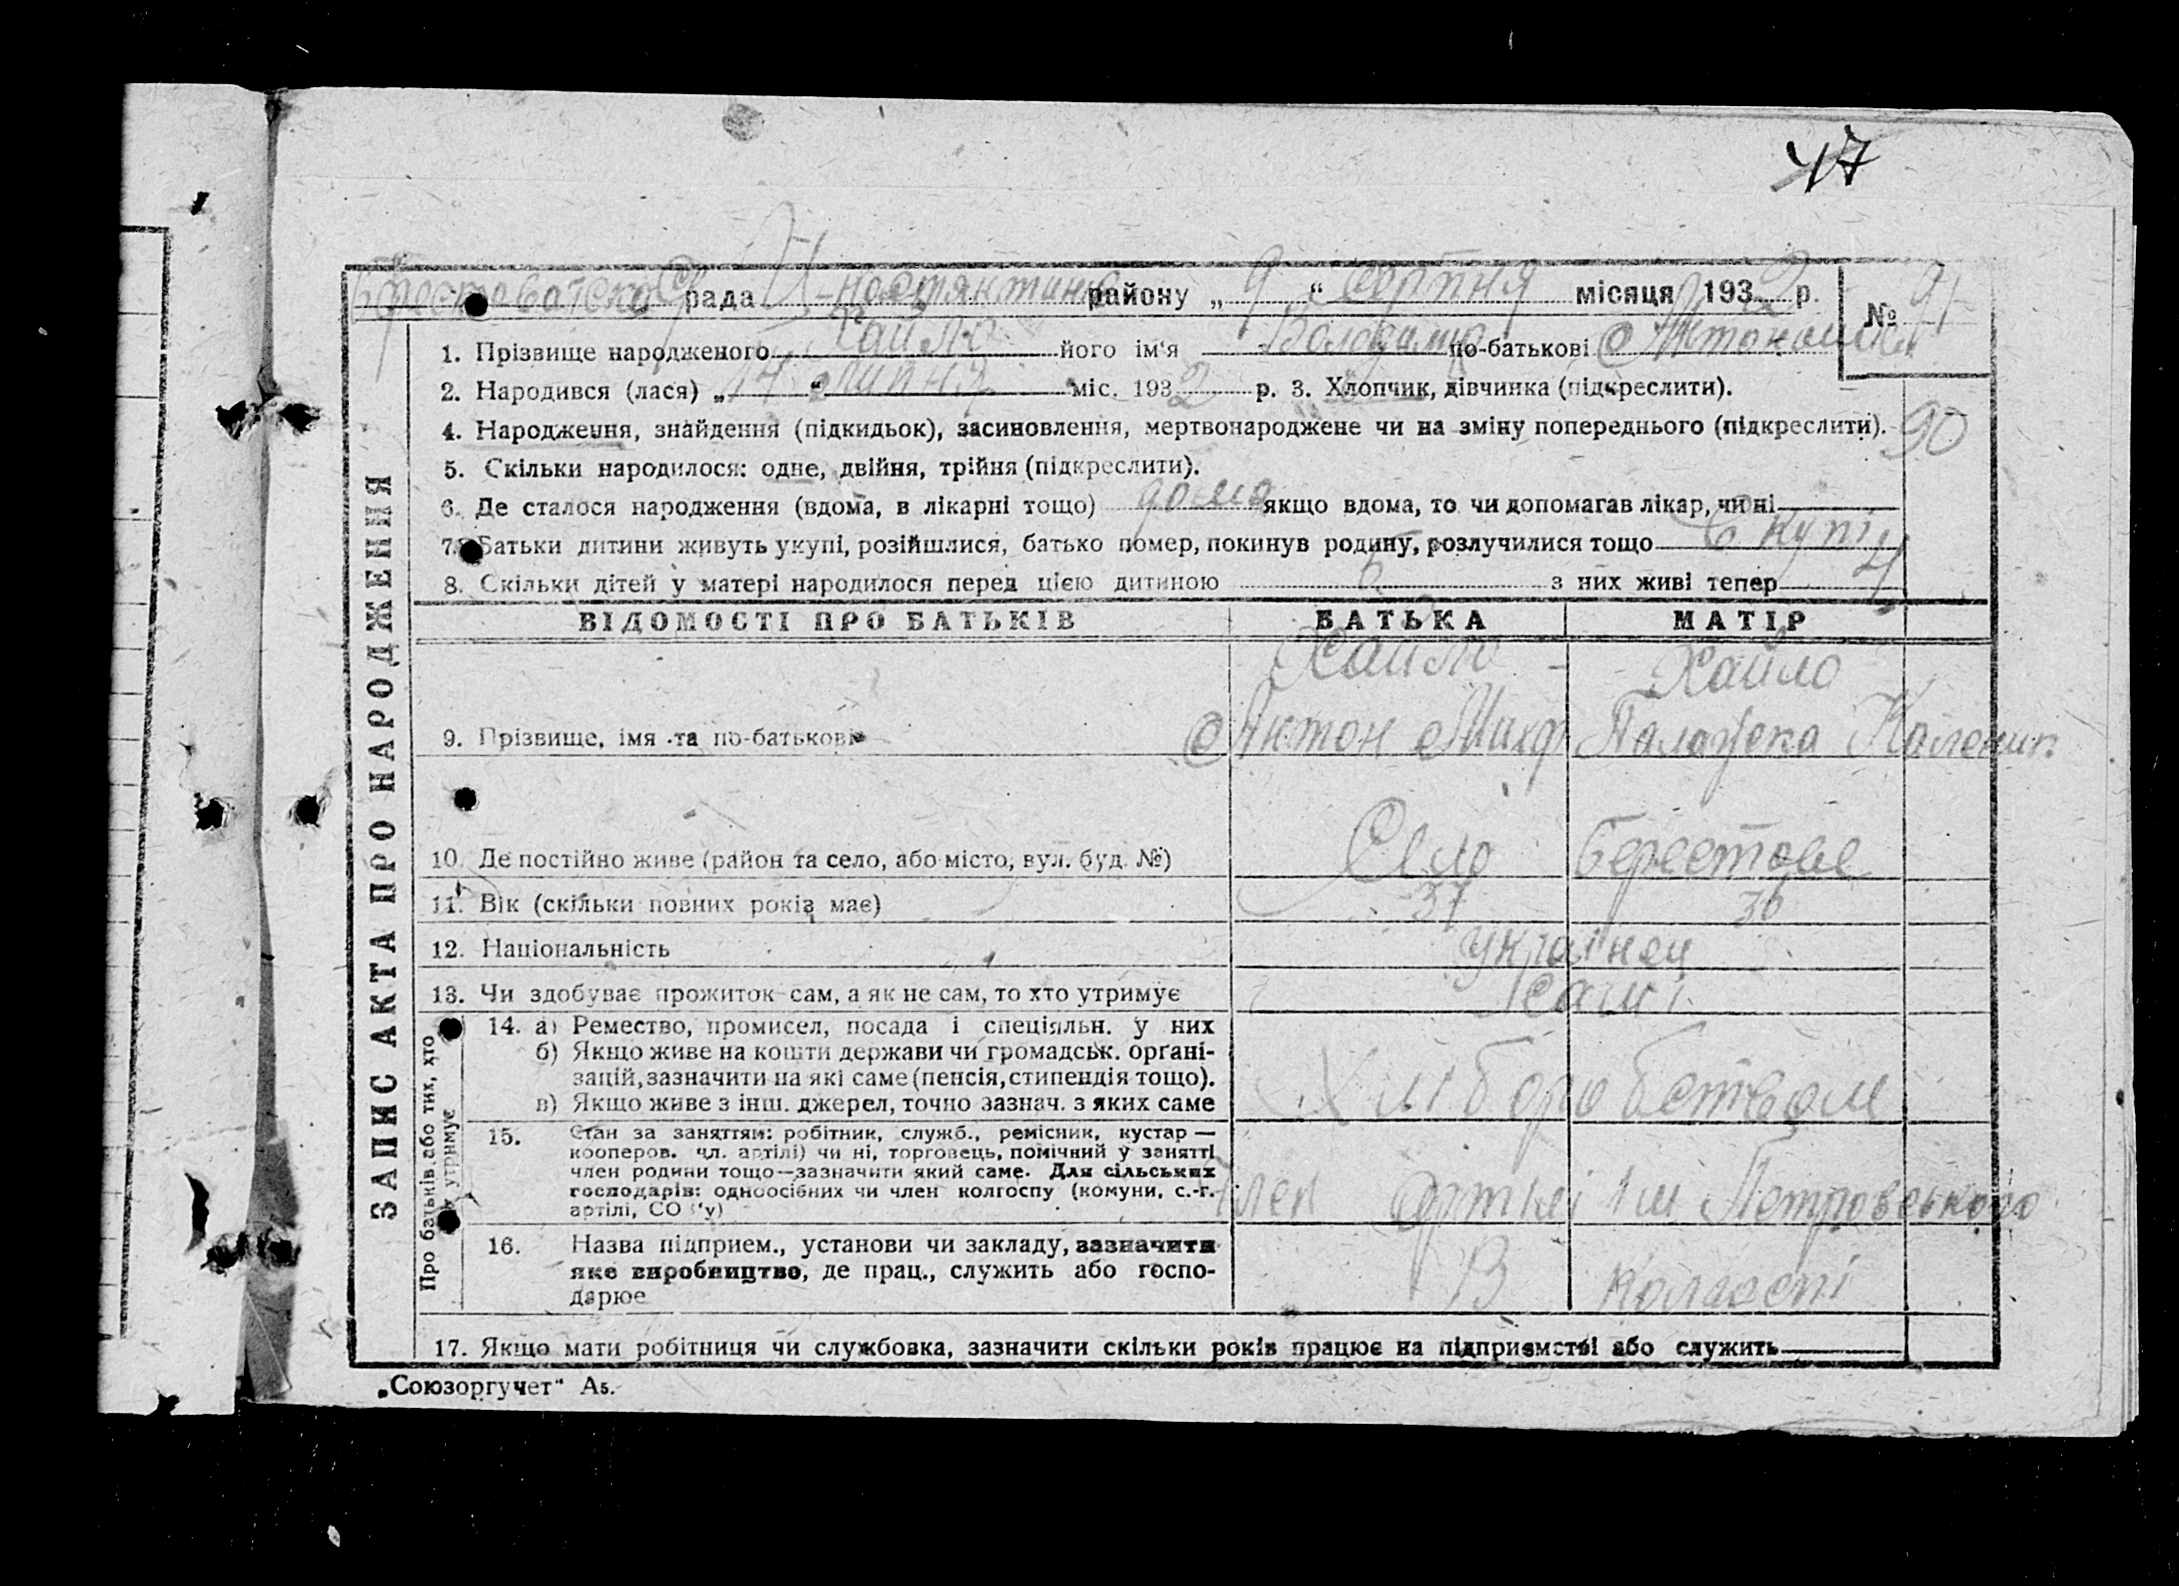 47
Берестоватска С/ рада району „ 9 “ Серпня місяця 1932 р.
№ 91
1. Прізвище народженого Хайло його ім'я Володимир по-батькові Антонович
2. Народився (лася) „ 17 “ липня міс. 1932 р. 3. Хлопчик, дівчинка (підкреслити).
4. Народження, знайдення (підкидьок), засиновлення, мертвонароджене чи на зміну попереднього (підкреслити). 90
5. Скільки народилося: одне, двійня, трійня (підкреслити).
6. Де сталося народження (вдома, в лікарні тощо) дома якщо вдома, то чи допомагав лікар, чи ні
7. Батьки дитини живуть укупі, розійшлися, батько помер, покинув родину, розлучилися тощо Вкупі
8. Скільки дітей у матері народилося перед цією дитиною 6 з них живі тепер 4
ВІДОМОСТІ ПРО БАТЬКІВ БАТЬКА МАТІР
Хайло Хайло
9. Прізвище, імя та по-батькові Антон Михф Палажка Каленик.
10. Де постійно живе (район та село, або місто, вул. буд. №) Село Берестове
11. Вік (скільки повних років має) 37 36
12. Національність українец
13. Чи здобуває прожиток сам, а як не сам, то хто утримує Самі
14. а) Ремество, промисел, посада і спеціяльн. у них
б) Якщо живе на кошти держави чи громадськ. органі-
зацій, зазначити на які саме (пенсія, стипендія тощо).
в) Якщо живе з інш. джерел, точно зазнач. з яких саме
Хліборобством
15. Стан за заняттям: робітник, служб., ремісник, кустар —
кооперов. чл. артілі) чи ні, торговець, помічний у занятті
член родини тощо—зазначити який саме. Для сільських
господарів: одноосібних чи член колгоспу (комуни, с.-г.
артілі, СО З'у)
член Артілі Ім Петровського
16. Назва підприєм., установи чи закладу, зазначити
яке виробництво, де прац., служить або госпо-
дарює
В колгоспі
17. Якщо мати робітниця чи службовка, зазначити скільки років працює на підприємстві або служить
ЗАПИС АКТА ПРО НАРОДЖЕННЯ
Про батьків або тих, хто
їх утримує
„Союзоргучет“ А5.